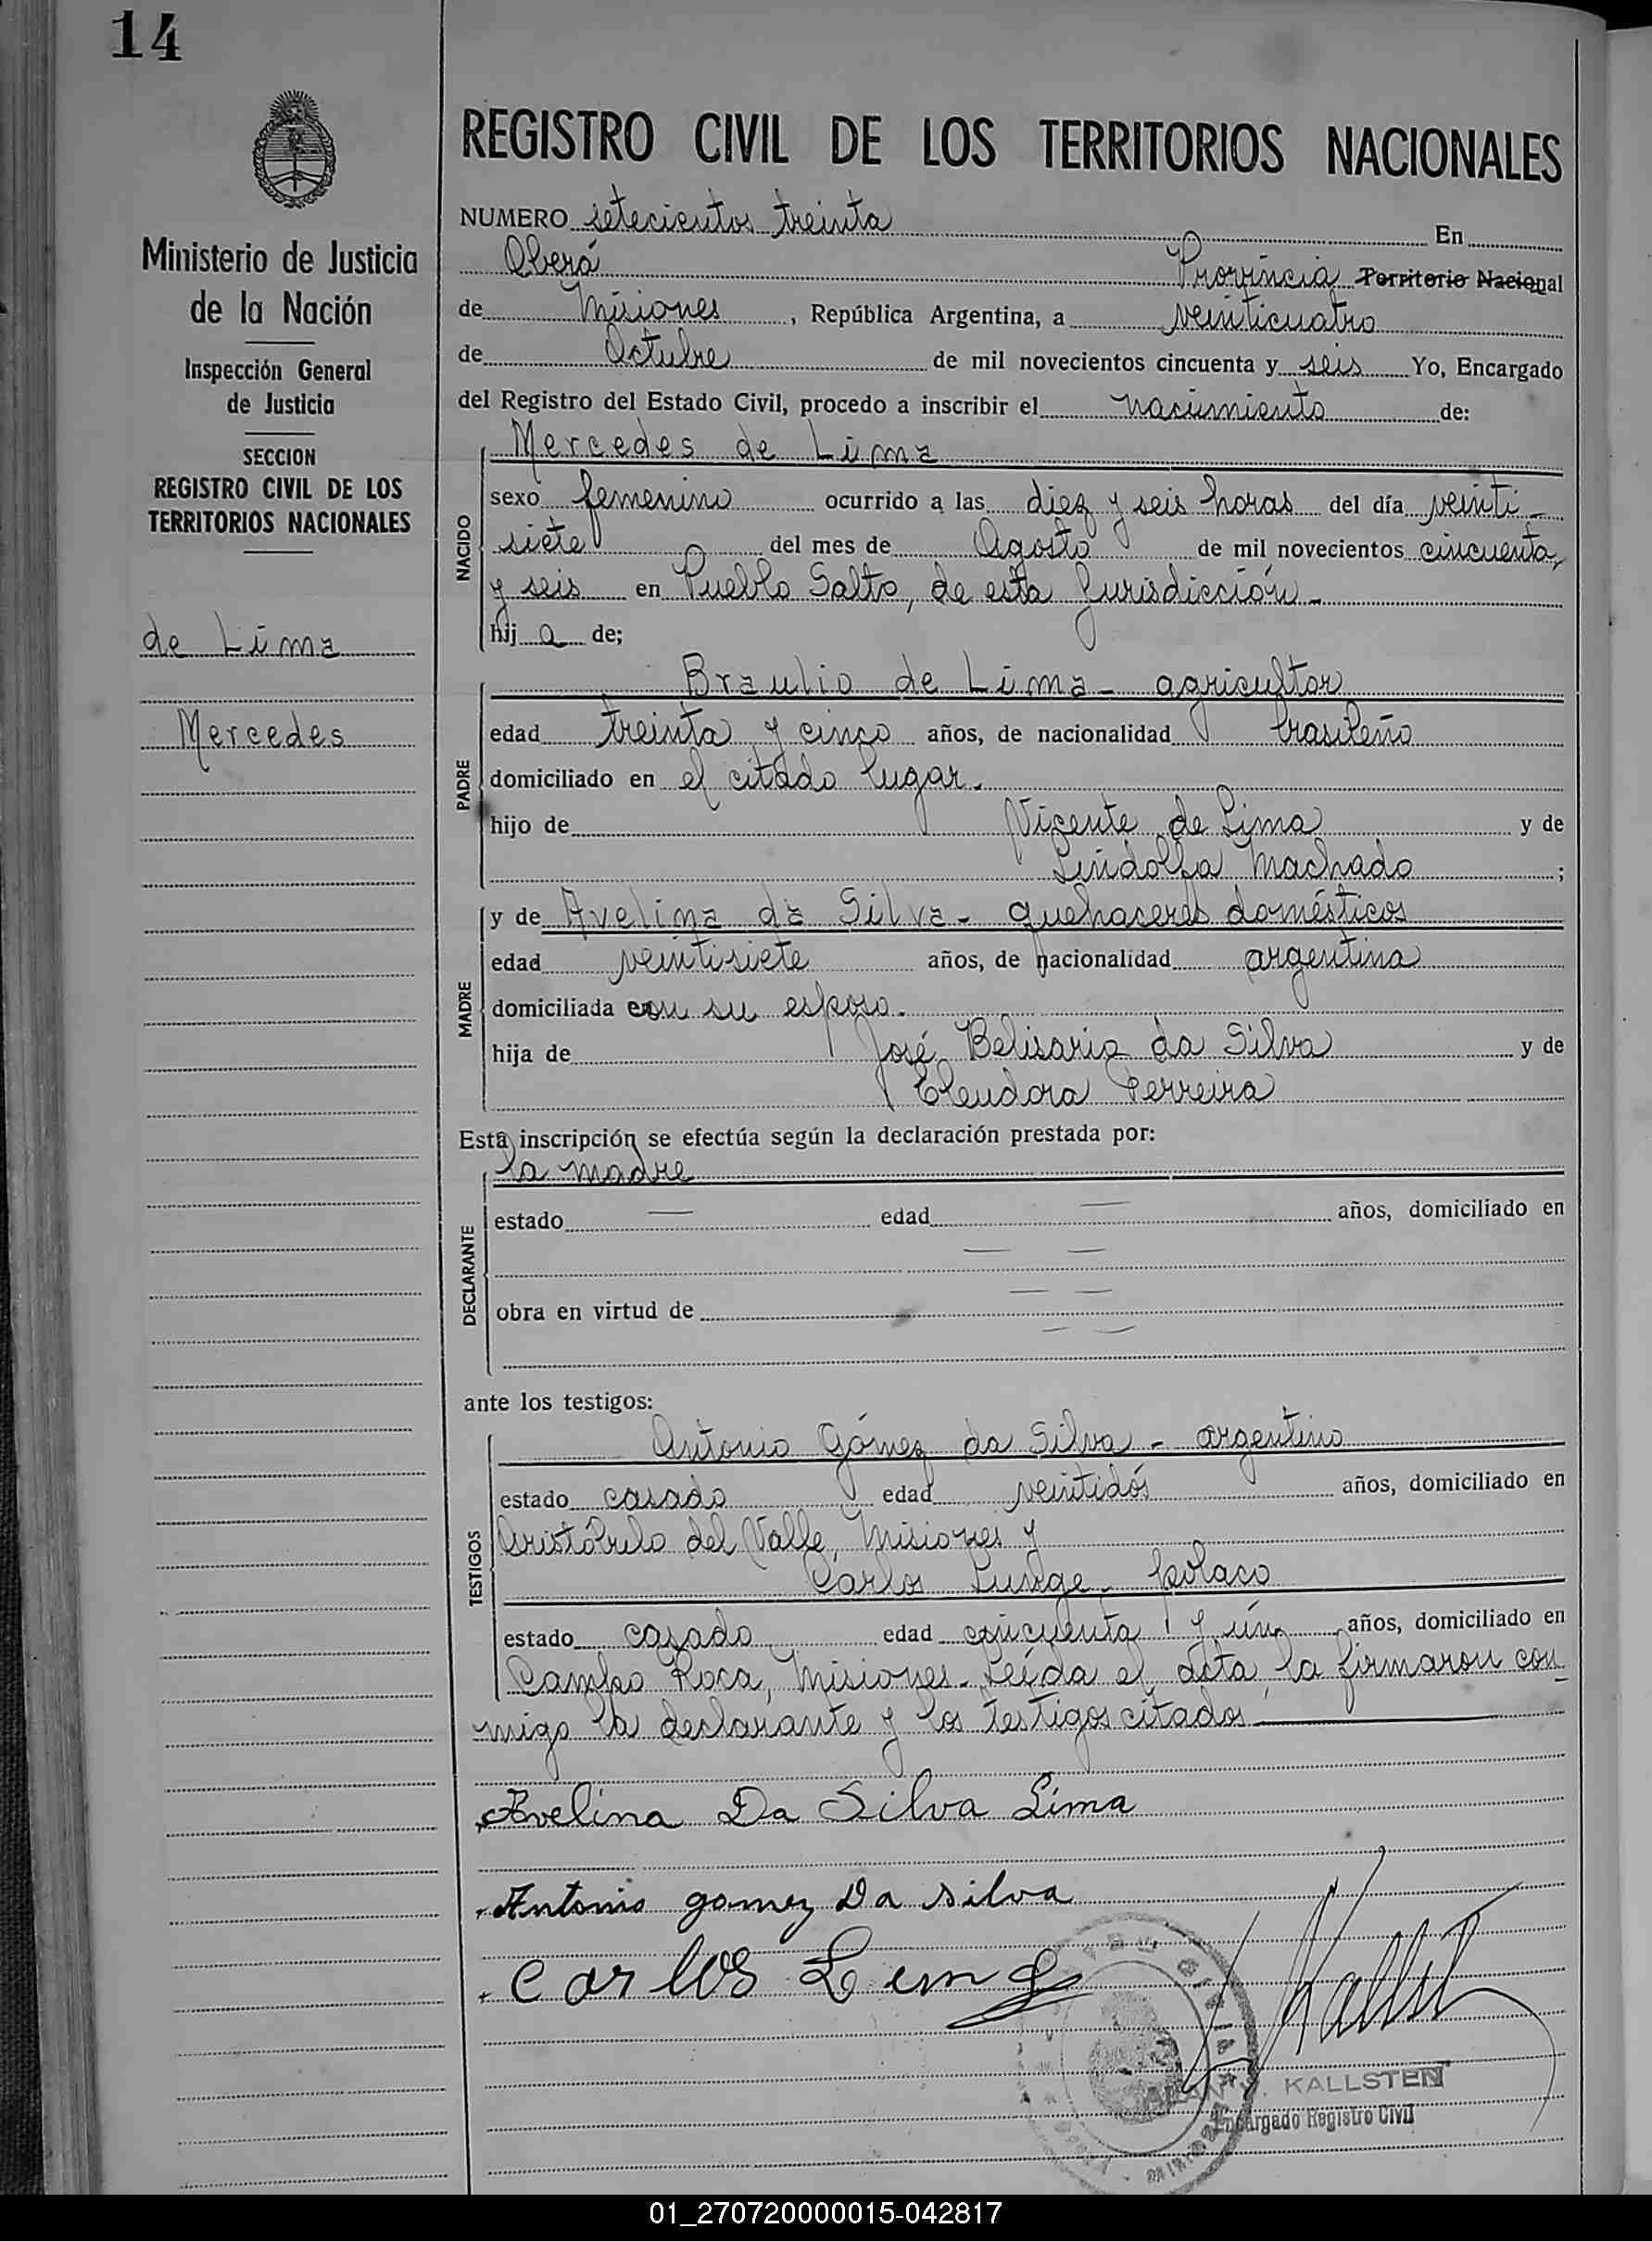 14
REGISTRO CIVIL DE LOS TERRITORIOS NACIONALES
Ministerio de Justicia
de la Nación
Inspección General
de Justicia
SECCION
REGISTRO CIVIL DE LOS
TERRITORIOS NACIONALES
de Lima
Mercedes
NUMERO setecientos treinta En
Oberá Provincia Territorio Nacional
de Misiones, República Argentina, a veinticuatro
de Octubre de mil novecientos cincuenta y seis Yo, Encargado
del Registro del Estado Civil, procedo a inscribir el nacimiento de:
NACIDO
Mercedes de Lima
sexo femenino ocurrido a las diez y seis horas del día veinti-
siete del mes de Agosto de mil novecientos cincuenta
y seis en Pueblo Salto, de esta Jurisdicción.-
hij a de;
PADRE
Braulio de Lima - agricultor
edad treinta y cinco años, de nacionalidad brasileño
domiciliado en el citado lugar.
hijo de Vicente de Lima y de
Lindolfa Machado ;
MADRE
y de Avelina da Silva - quehaceres domésticos
edad veintisiete años, de nacionalidad argentina
domiciliada con su esposo.
hija de José Belisario da Silva y de
Eleudora Ferreira
Esta inscripción se efectúa según la declaración prestada por:
DECLARANTE
la madre
estado — edad — años, domiciliado en
— —
— —
obra en virtud de
— —
ante los testigos:
TESTIGOS
Antonio Gómez da Silva - argentino
estado casado edad veintidós años, domiciliado en
Aristóbulo del Valle, Misiones y
Carlos Lunge - polaco
estado casado edad cincuenta y un años, domiciliado en
Campo Roca, Misiones. Leída el acta, la firmaron con-
migo la declarante y los testigos citados
Avelina Da Silva Lima
Antonio gomez Da silva
Carlos
KALLSTEN
Encargado Registro Civil
01_270720000015-042817